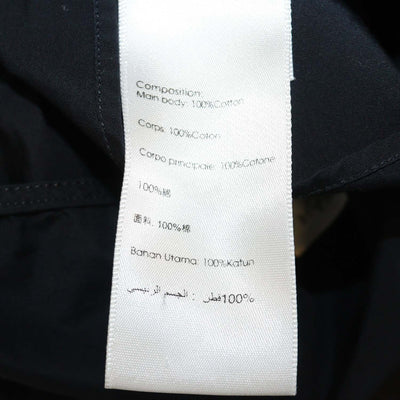 Composition:
Main body: 100%Cotton
Corps: 100%Coton
Corpo principale: 100%Cotone
100%綿
面料: 100%棉
Bahan Utama: 100%Katun
الجسم الرئيسي : 100%قطن